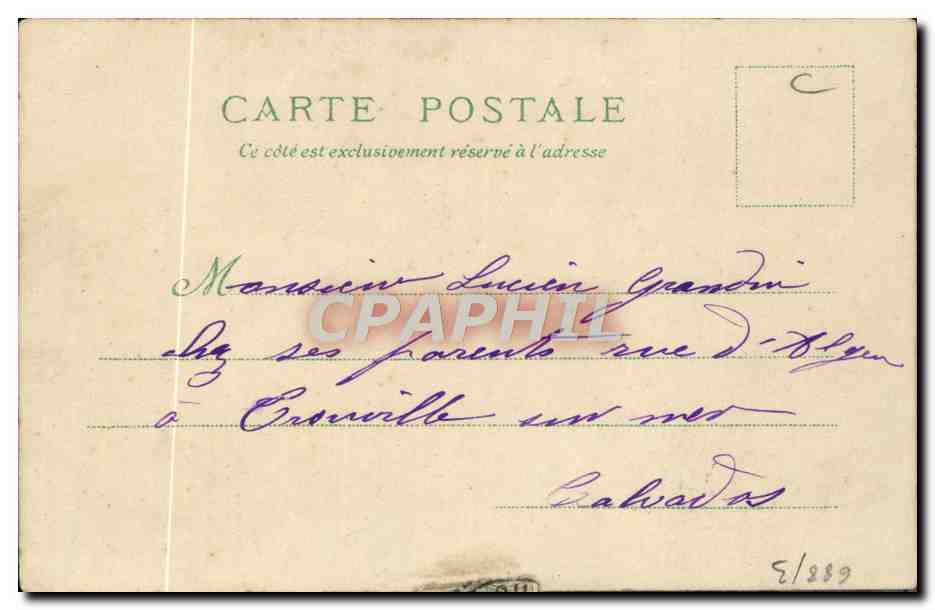 C
CARTE POSTALE
Ce côté est exclusivement réservé à l'adresse
Monsieur Lucien Grandin
CPAPHIL
chez ses parents rue d'Alger
à Trouville sur mer
Calvados